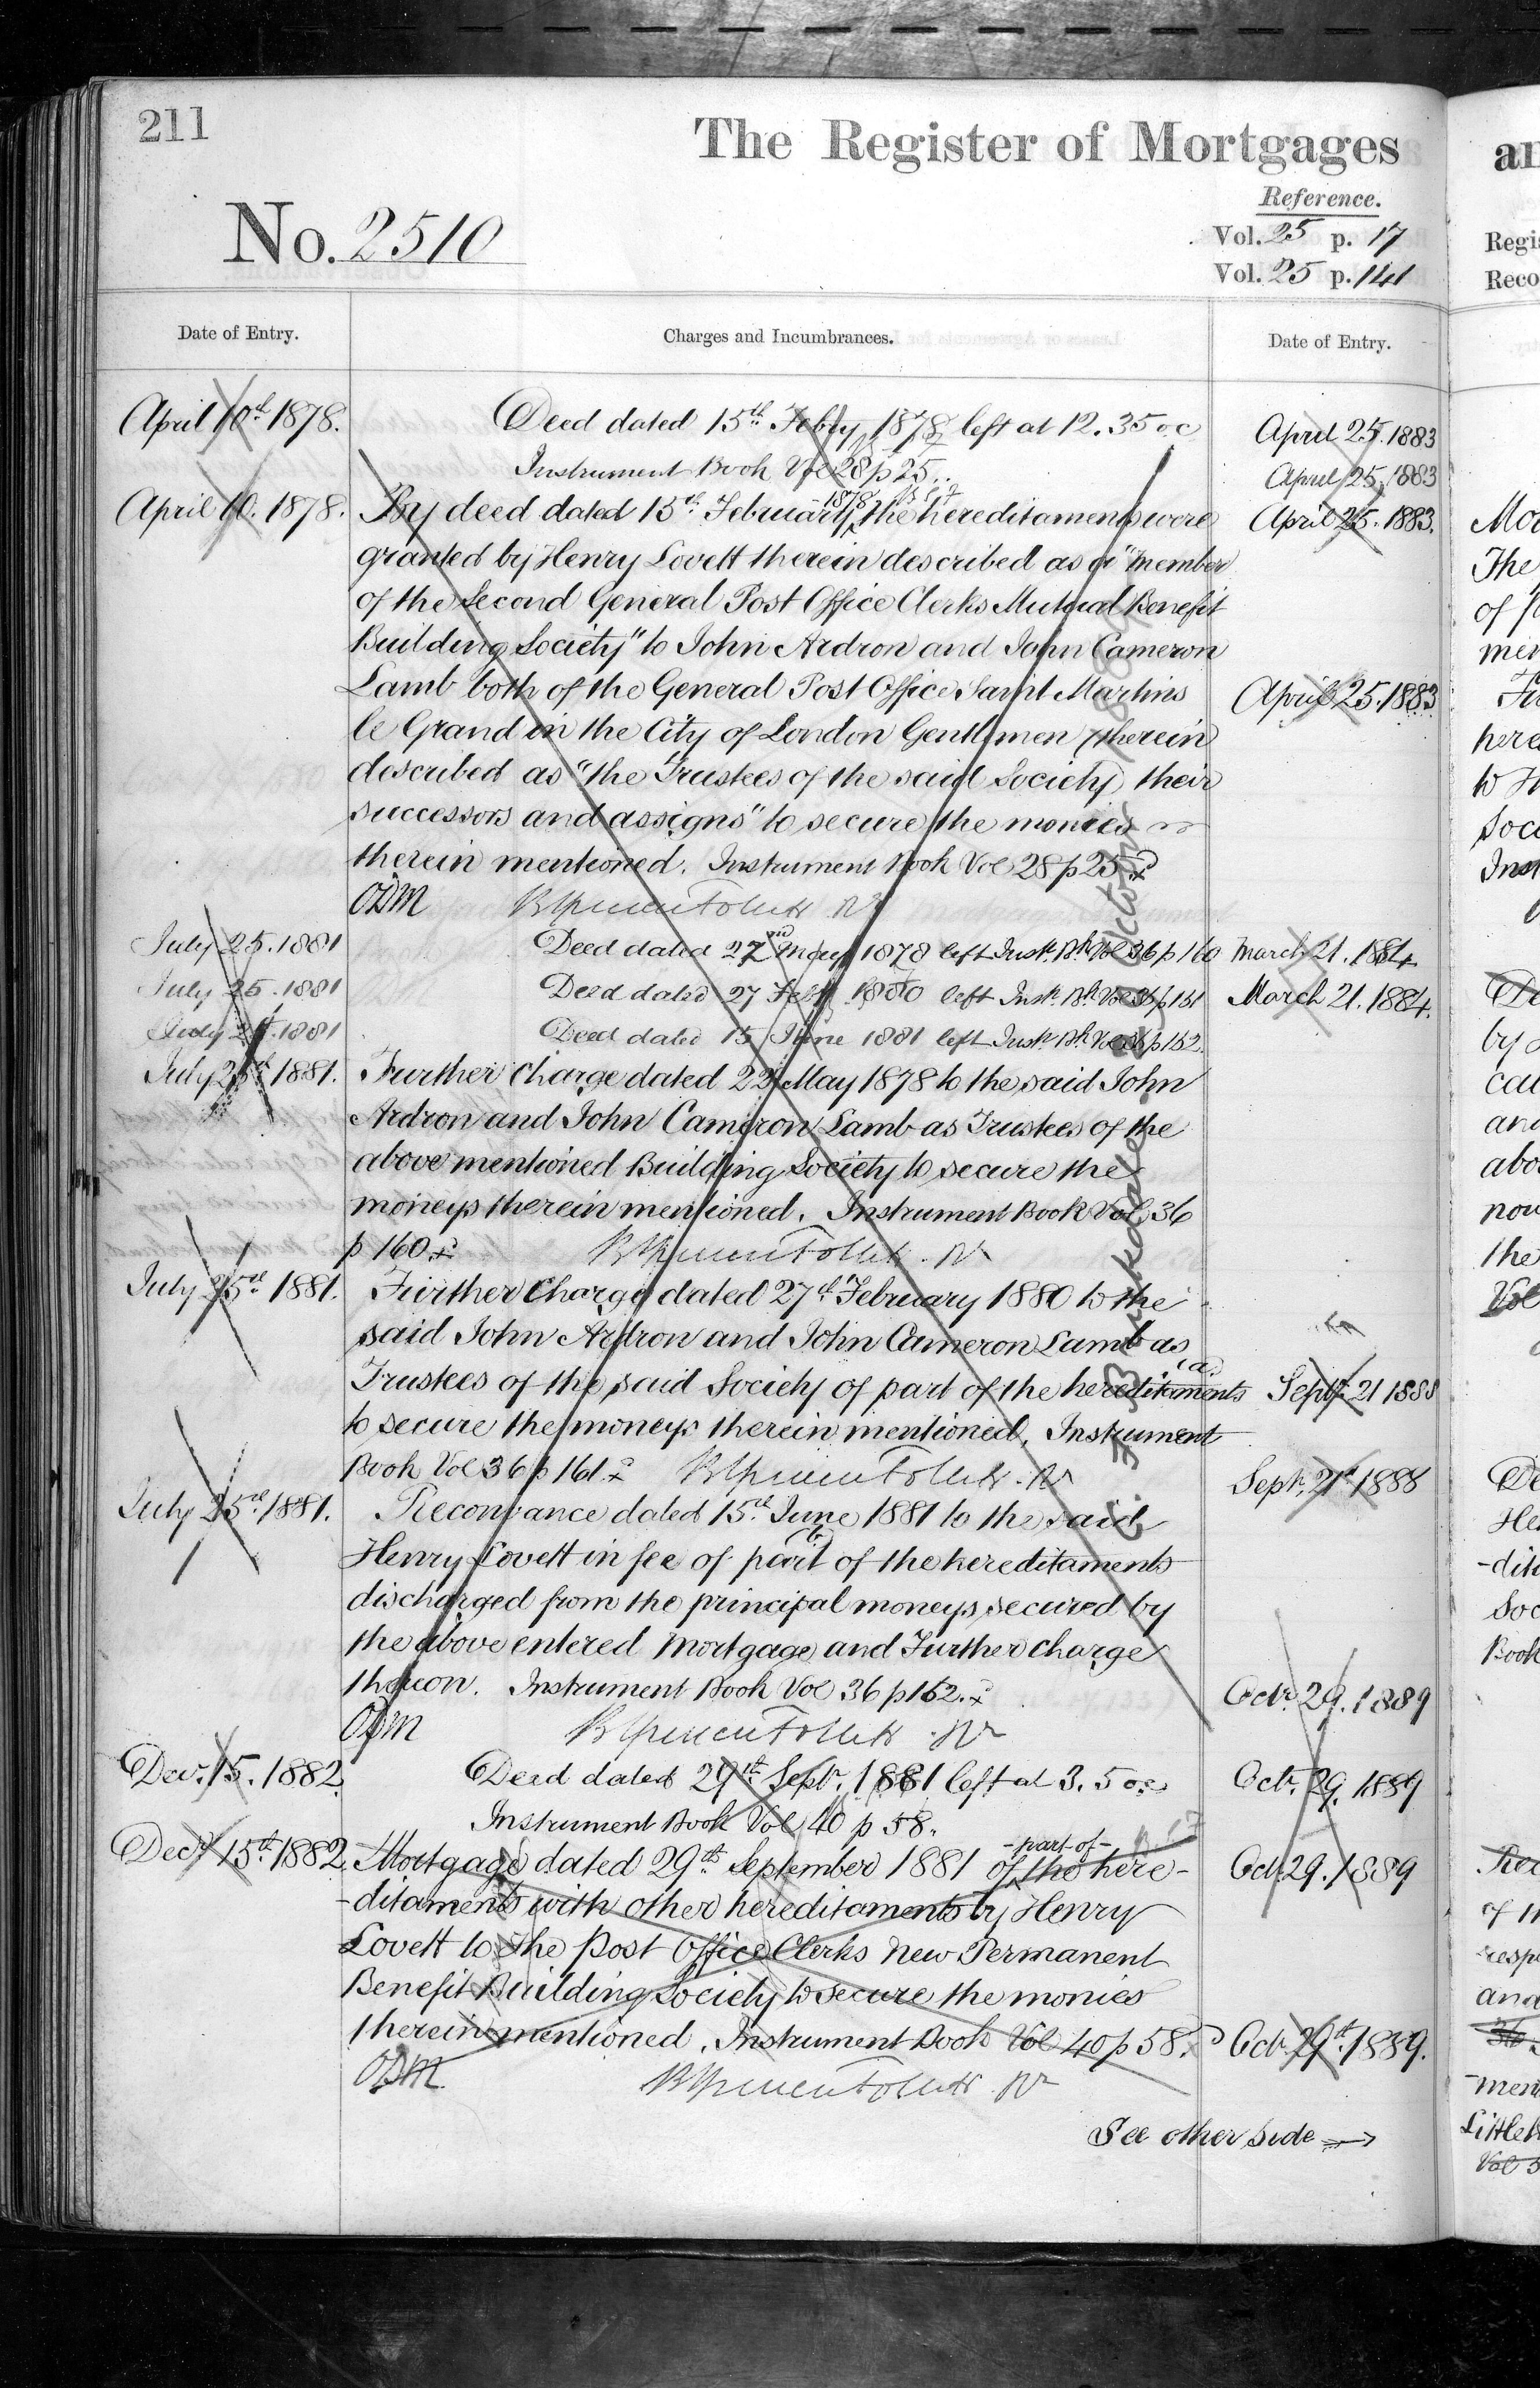 211
The Register of Mortgages
No. 2510
Reference.
Vol. 25 p. 17
Vol. 25 p. 141
Date of Entry.
Charges and Incumbrances.
Date of Entry.
April 10th 1878.
Deed dated 15th Feby 1878 left at 12.35 oc
Instrument Book Vol 28 p 25.
April 10. 1878.
By deed dated 15th February 1878 the hereditaments were
granted by Henry Lovett therein described as a "member
of the Second General Post Office Clerks Mutual Benefit
Building Society" to John Ardron and John Cameron
Lamb both of the General Post Office Saint Martins
le Grand in the City of London Gentlemen (therein
described as "the Trustees of the said Society) their
successors and assigns" to secure the monies
therein mentioned. Instrument Book Vol 28 p 25
ODM
July 25. 1881
Deed dated 22nd May 1878 left Inst. Bk Vol 36 p 160
July 25. 1881
Deed dated 27 Feby 1880 left Inst. Bk Vol 36 p 161
July 25. 1881
Deed dated 15 June 1881 left Inst. Bk Vol 36 p 162.
July 25th 1881.
Further Charge dated 22nd May 1878 to the said John
Ardron and John Cameron Lamb as Trustees of the
above mentioned Building Society to secure the
moneys therein mentioned. Instrument Book Vol 36
p 160
July 25th 1881.
Further Charge dated 27th February 1880 to the
said John Ardron and John Cameron Lamb as
Trustees of the said Society of part (a) of the hereditaments
to secure the moneys therein mentioned. Instrument
Book Vol 36 p 161.
July 25th 1881.
Reconvance dated 15th June 1881 to the said
Henry Lovett in fee of part (b) of the hereditaments
discharged from the principal moneys secured by
the above entered Mortgage and Further Charge
thereon. Instrument Book Vol 36 p 162.
ODM
Decr. 15. 1882.
Deed dated 29th Septr. 1881 left at 3.5 oc
Instrument Book Vol 40 p 58.
Decr 15th 1882.
Mortgage dated 29th September 1881 of -part of- the here-
-ditaments with other hereditaments by Henry
Lovett to The Post Office Clerks New Permanent
Benefit Building Society to secure the monies
therein mentioned. Instrument Book Vol 40 p 58.
ODM
See other side
April 25. 1883
April 25. 1883
April 25. 1883.
April 25. 1883
March 21. 1884
March 21. 1884.
Septr 21 1888
Septr. 21st 1888
Octr. 29. 1889
Octr. 29. 1889
Oct. 29. 1889
Oct. 29th 1889.
an
Regis
Reco